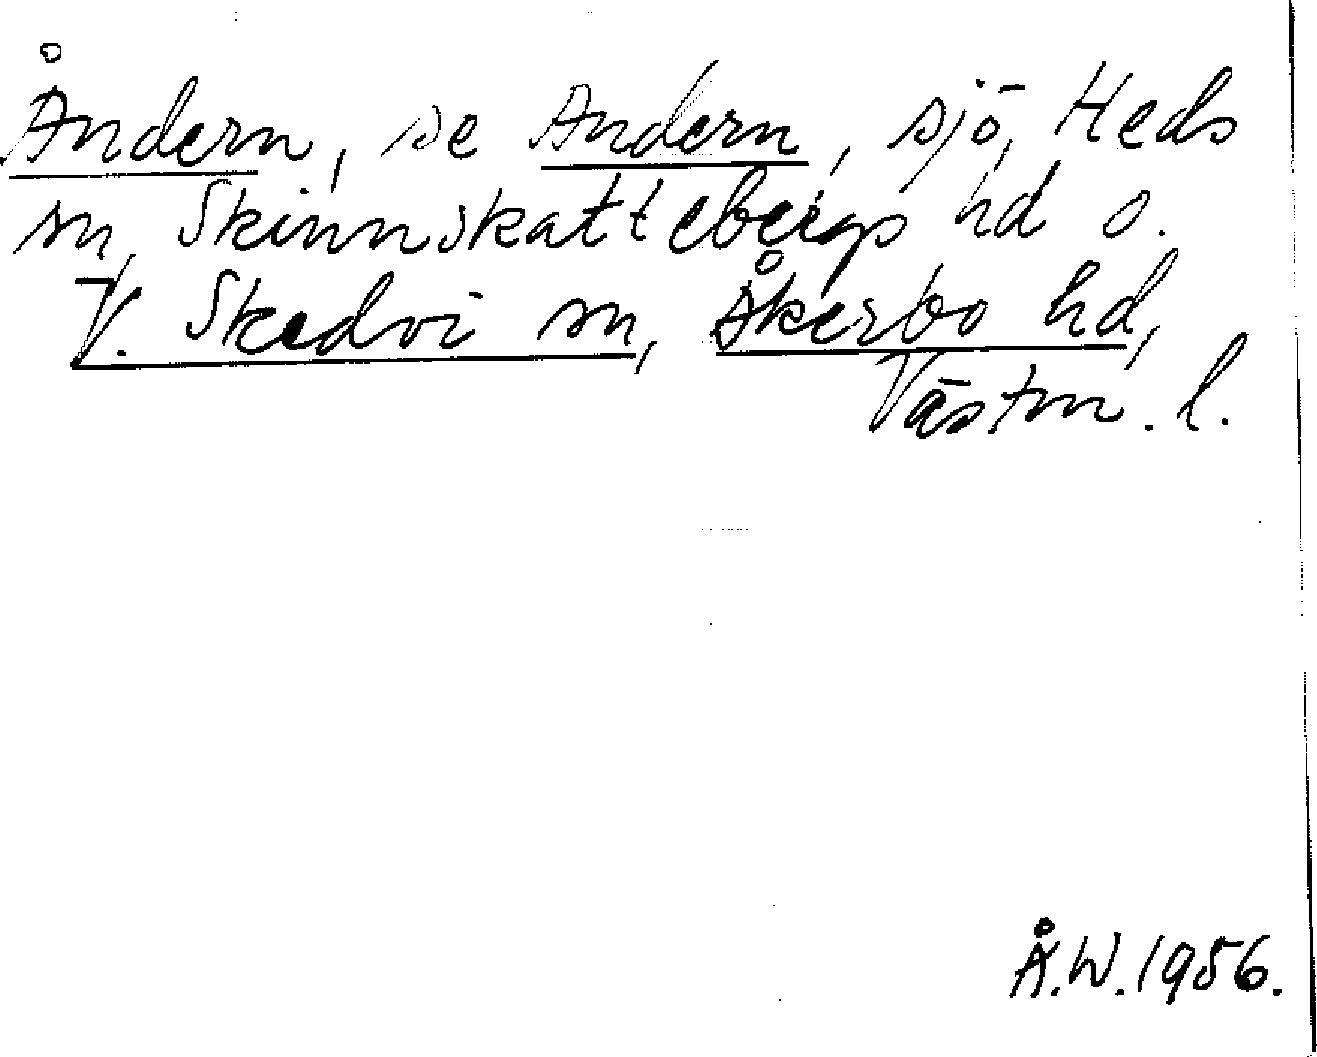 Åndern, se Andern, sjö, Heds
sn, Skinnskattebergs hd o.
V. Skedvi sn, Åkerbo hd,
Västm. l.
Å.W. 1956.